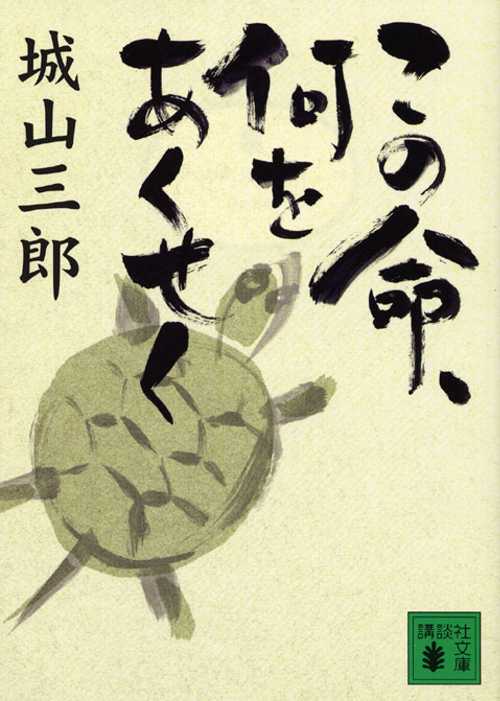 この命、
何を
あくせく
城山三郎
講談
社文庫